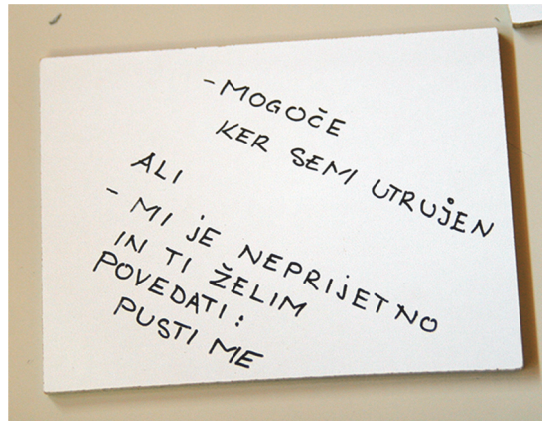 - MOGOČE
KER SEM UTRUJEN
ALI
- MI JE NEPRIJETNO
IN TI ŽELIM
POVEDATI:
PUSTI ME